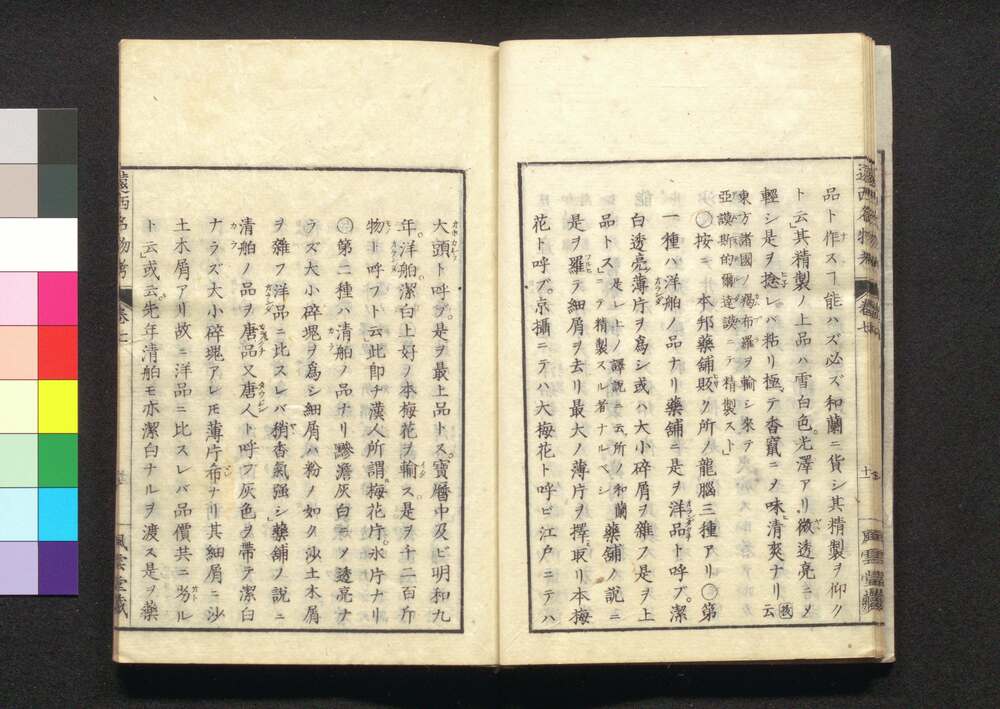 品ト作スヿ能ハズ必ズ和蘭ニ貨シ其精製ヲ仰ク
ト云」其精製ノ上品ハ雪白色光澤アリ微透亮ニメ
輕シ是ヲ捻レバ粘リ極テ香竄ニメ味清爽ナリ 云
東方諸國ノ羯布羅ヲ輸シ來テ
亞謨斯的爾達謨ニテ精製スト」
〇按ニ 本邦藥舗販ク所ノ龍腦三種アリ〇第
一種ハ洋舶ノ品ナリ藥舗ニ是ヲ洋品ト呼ブ潔
白透亮薄片ヲ爲シ或ハ大小碎屑ヲ雜フ是ヲ上
品トス」是レ上ノ譯説ニ云所ノ和蘭ニテ精製スル者ナルベシ 藥舗ノ説ニ
是ヲ羅テ細屑ヲ去リ最大ノ薄片ヲ擇取リ本梅
花ト呼ブ京攝ニテハ大梅花ト呼ビ江戸ニテハ
大頭ト呼ブ是ヲ最上品トス寶曆中及ビ明和九
年洋舶潔白上好ノ本梅花ヲ輸ス是ヲ千二百斤
物ト呼フト云」此即チ漢人所謂梅花片氷片ナリ
〇第二種ハ清舶ノ品ナリ黲澹灰白ニメ透亮ナ
ラズ大小碎塊ヲ爲シ細屑ハ粉ノ如ク沙土木屑
ヲ雜フ洋品ニ比スレバ稍香氣强シ」藥舗ノ説ニ
清舶ノ品ヲ唐品又唐人ト呼フ灰色ヲ帶テ潔白
ナラズ大小碎塊アレ𪜈薄片布ナリ其細屑ニ沙
土木屑アリ故ニ洋品ニ比スレバ品價共ニ劣ル
ト云」或云先年清舶モ亦潔白ナルヲ渡ス是ヲ藥
遠西名物考
卷七
風雲堂藏